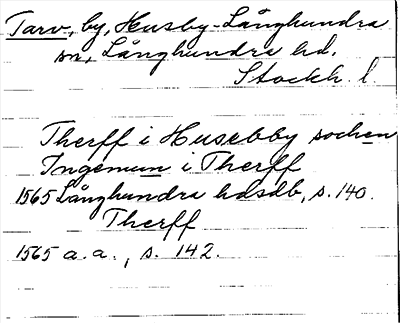 Tarv, by, Husby-Långhundra
sn, Långhundra hd.
Stockh. l.
Therff i Husebby sochen
Ingemun i Therff
1565 Långhundra hdsdb, s. 140.
Therff
1565 a. a., s. 142.